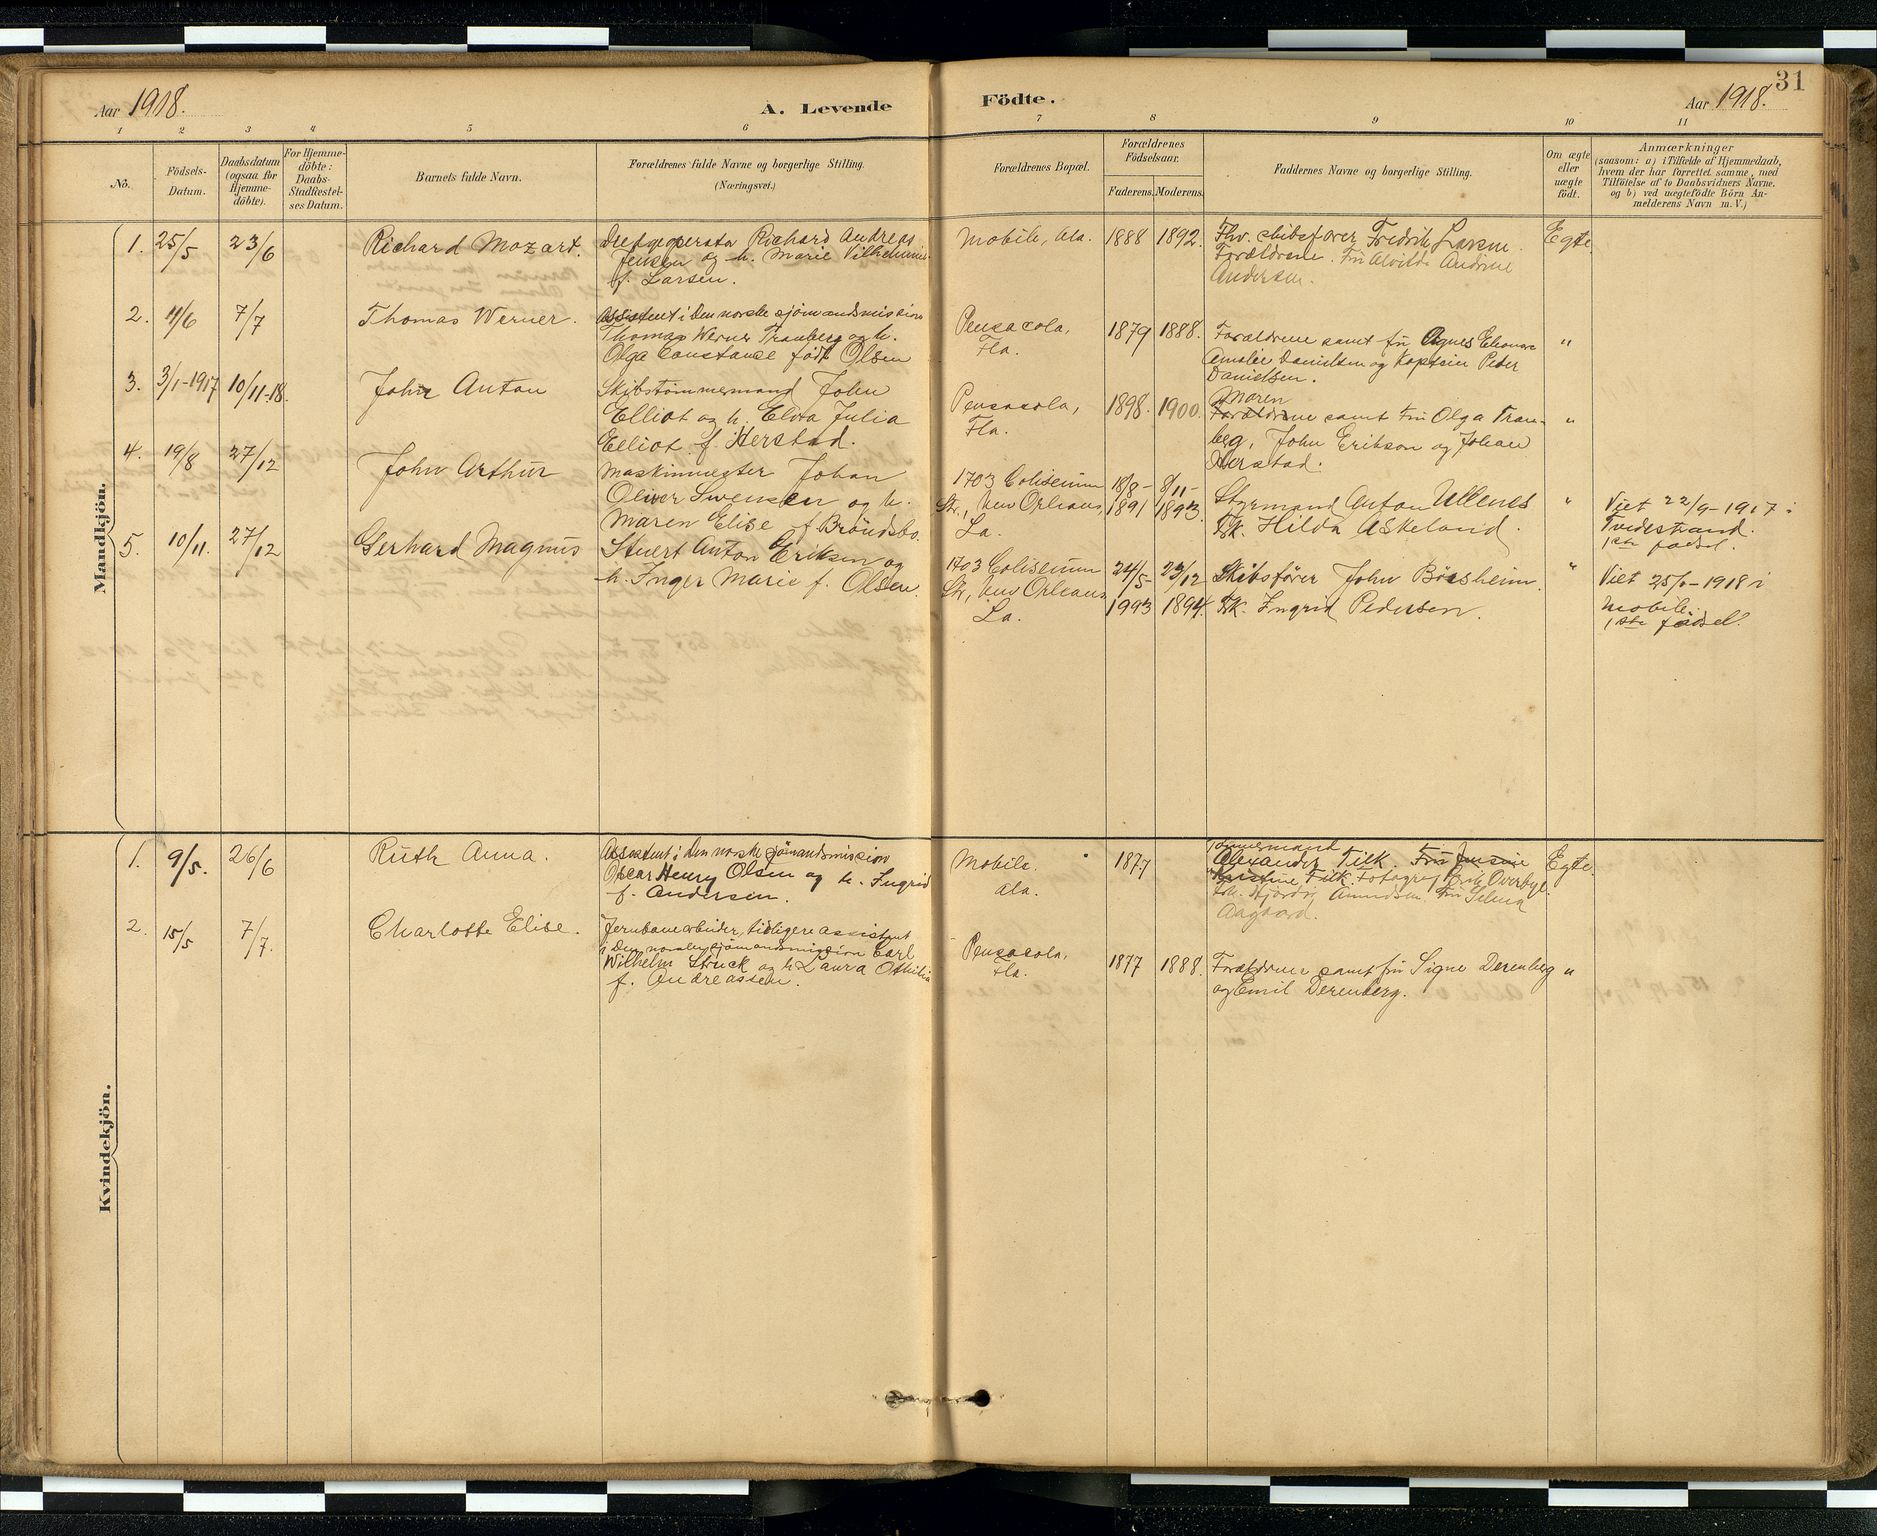 Aar 1918.
A. Levende Födte.
Aar 1918.
31
1 2 3 4 5 6 7 8 9 10 11
No.
Födsels-
Datum.
Daabsdatum
(ogsaa for
Hjemme-
döbte).
For Hjemme-
döbte:
Daabs-
Stadfæstel-
ses Datum.
Barnets fulde Navn.
Forældrenes fulde Navne og borgerlige Stilling.
(Næringsvei.)
Forældrenes Bopæl.
Forældrenes
Födselsaar.
Faderens. Moderens.
Faddernes Navne og borgerlige Stilling.
Om ægte
eller
uægte
födt.
Anmærkninger
(saasom: a) i Tilfælde af Hjemmedaab,
hvem der har forrettet samme, med
Tilföielse af to Daabsvidners Navne,
og b) ved uægtefödte Börn An-
melderens Navn m. V.)
Mandkjön.
1. 25/5 23/6 Richard Mozart.
Richard Andreas
Jensen og h. Marie Vilhelmine
f. Larsen.
Mobile, Ala. 1888 1892.
Fhv. skibsfører Fredrik Larsen
Forældrene. Fru Alvilde Andrine
Andersen.
Egte.
2. 11/6 7/7 Thomas Werner.
Assistent i Den norske sjömandsmission
Thomas Werner Tranberg og h.
Olga Constanse født Olsen
Pensacola,
Fla.
1879 1888.
Forældrene samt fru Agnes Eleonore
Amalie Danielsen og Kaptein Peder
Danielsen.
"
3. 3/1-1917 10/11-18. John Anton
Skibstømmermand John
Elliot og h. Elva Julia
Elliot f. Herstad.
Pensacola,
Fla.
1898. 1900.
Maren
Forældrene samt Fru Olga Tran-
berg, John Erikson og Johan
Herstad.
"
4. 19/8 27/12 John Arthur
Maskinmester Johan
Oliver Swensen og h.
Maren Elise f. Bröndsbo.
1703 Coliseum
Str., New Orleans,
La.
18/8-
1891
8/11-
1893.
Styrmand Anton Ullenes
Frk. Hilda Askeland.
"
Viet 22/9-1917 i
Tvedestrand.
1ste fødsel.
5. 10/11. 27/12 Gerhard Magnus
Stuert Anton Eriksen og
h. Inger Marie f. Olsen.
1703 Coliseum
Str., New Orleans
La.
24/5-
1993
23/12
1894.
Skibsfører John Börsheim
Frk. Ingrid Pedersen.
"
Viet 25/ -1918 i
Mobile.
1ste fødsel.
Kvindekjön.
1. 9/5. 26/6 Ruth Anna.
Assistent i Den norske sjömandsmission
Oscar Henry Olsen og h. Ingrid
f. Andersen.
Mobile.
Ala.
1877
Tømmermand
Alexander Filk. Fru Jensine
Kristine Filk. Fotograf Erik Overbye.
Amundsen. Fru Selma
Aagaard.
Egte.
2. 15/5 7/7. Charlotte Elise.
Jernbanearbeider, tidligere assistent
i Den norske sjömandsmission Carl
Wilhelm Struck og h. Laura Othilie
f. Andreassen.
Pensacola,
Fla.
1877 1888.
Forældrene samt fru Signe Derenberg
og Emil Derenberg.
"